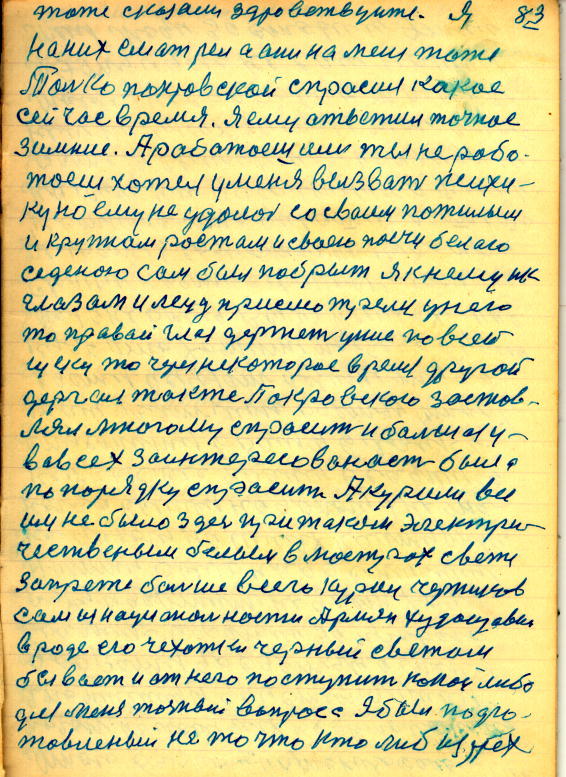 тоже сказали здровствуите. Я 83
На них сматрел а ани на меня тоже
Толко покровской спрасил какое
сейчас время. Я ему ответил точное
зимние. А работоеш или тыл не рабо-
тоеш хотел у меня вызвать психи-
ку но ему не удолос со своим пожилым
и крупнам ростам и своею почи белаго
седеною сам был побрыт я к нему
глазам и лицу присмотрелся у него
то правай глаз держет уние по всей
щеку то через некоторое время другой
дергал также Покровского застов-
лял многому спрасит и болша у
вовсех заинтересованост была
по порядку спрасит. А курили все
им не было здес при таком электри-
чественым белым в моступох свете
запрета болше всего курил черников
сам и нацианалности Армян худощавы
вроде его чехотки черный светом
бывает и от него поступит какой либо
для меня тозный вопрос Я был подго-
товленый не то что кто либ из трех